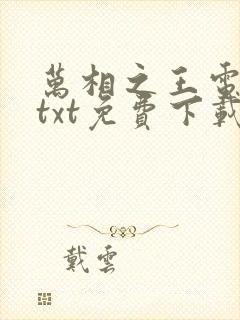 萬相之王電
txt免費下載
戴雲